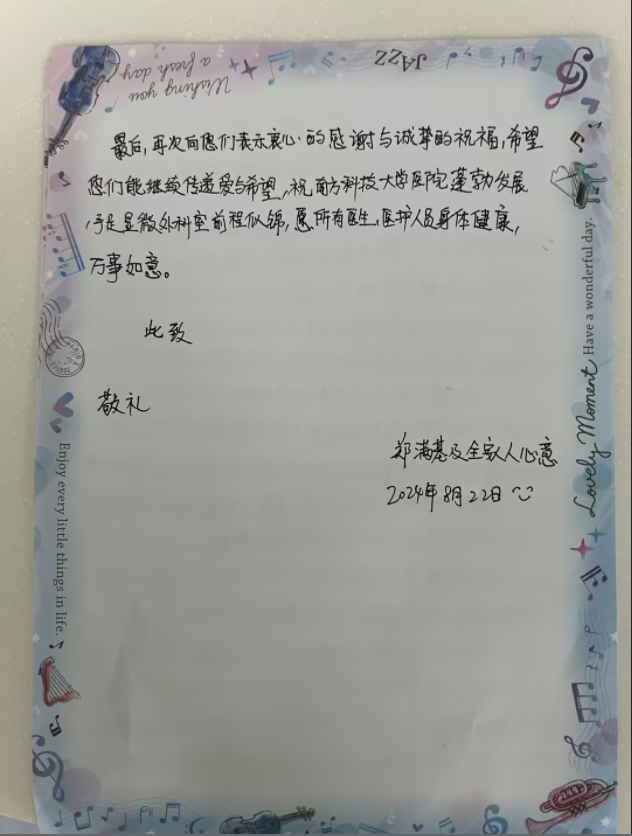 Wishing you
a fresh day
JAZZ
最后,再次向您们表示衷心的感谢与诚挚的祝福,希望
您们能继续传递爱与希望,祝南方科技大学医院蓬勃发展
手足显微外科室前程似锦,愿所有医生、医护人员身体健康,
万事如意。
此致
敬礼
郑满基及全家人心意
2024年8月22日
Have a wonderful day.
Lovely Moment
Enjoy every little things in life.